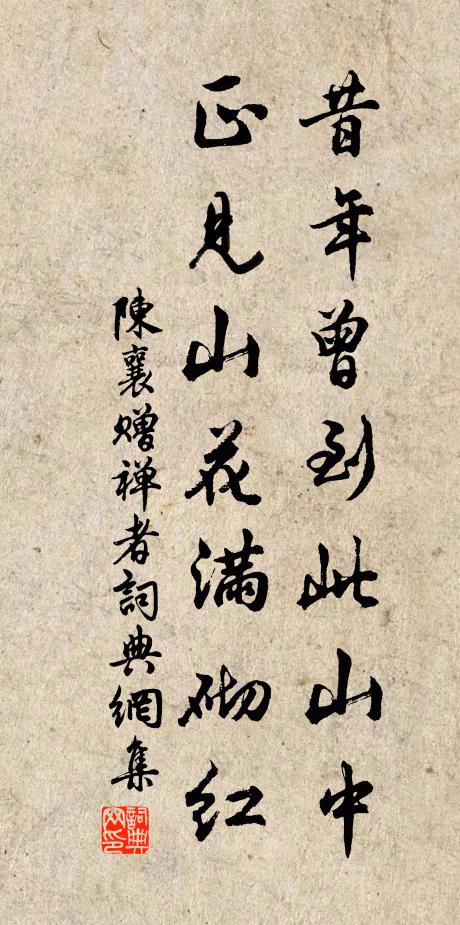 昔年曾到此山中
正见山花满砌红
陳襄赠禅者詞典網集
詞典网印